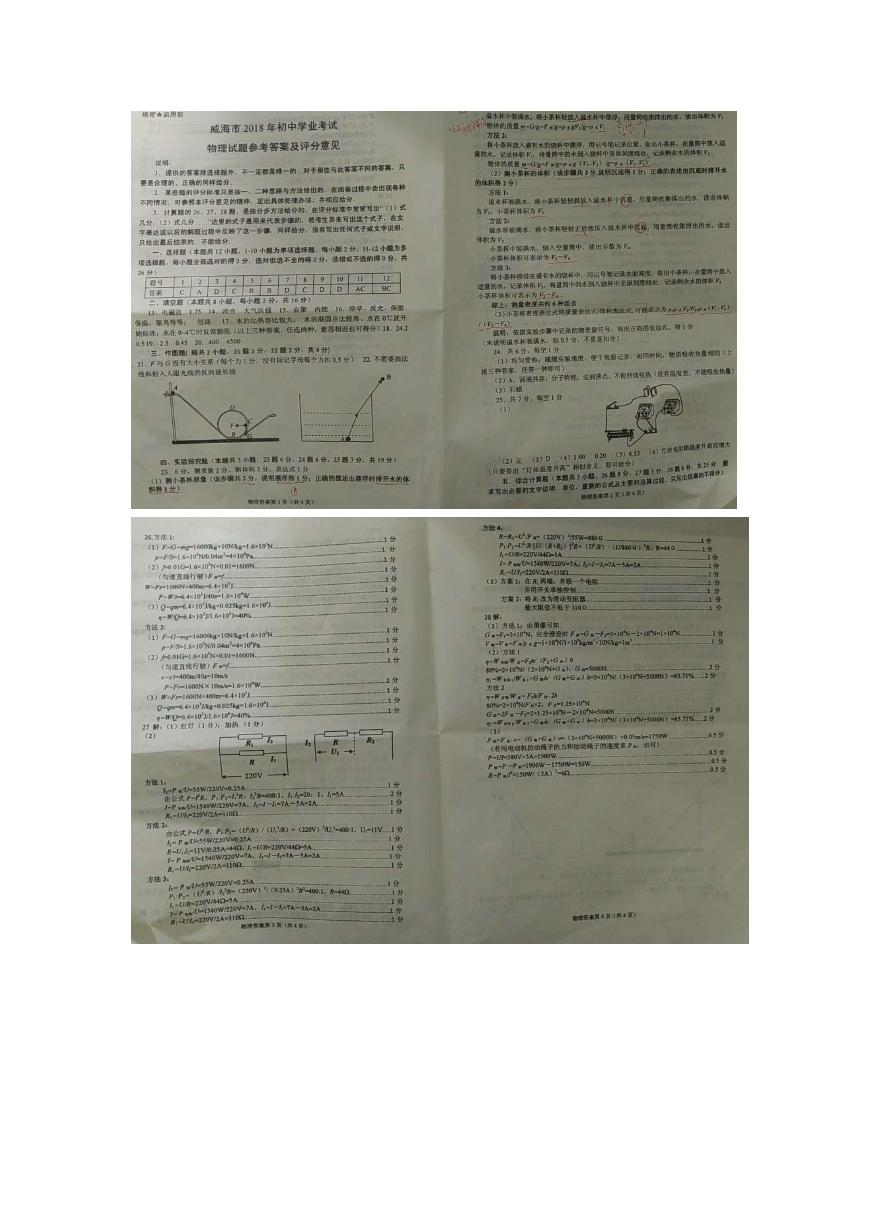 绝密★启用前
威海市 2018 年初中学业考试
物理试题参考答案及评分意见
说明:
1. 提供的答案除选择题外,不一定都是唯一的. 对于那些与此答案不同的答案,只
要是合理的、正确的同样给分.
2. 某些题的评分标准只是按一、二种思路与方法给出的. 在阅卷过程中会出现各种
不同情况,可参照本评分意见的精神,定出具体处理办法,并相应给分.
3. 计算题的 26、27、28 题,是按分步方法给分的,在评分标准中常常写出"(1)式
几分,(2)式几分 "这里的式子是用来代表步骤的,若考生并未写出这个式子,在文
字表达或以后的解题过程中反映了这一步骤,同样给分;没有写出任何式子或文字说明,
只给出最后结果的,不能给分.
一、选择题(本题共 12 小题,1-10 小题为单项选择题,每小题 2 分;11-12 小题为多
项选择题,每小题全部选对的得 3 分,选对但选不全的得 2 分,选错或不选的得 0 分,共
26 分)
题号 1 2 3 4 5 6 7 8 9 10 11 12
答案 C A D C B B D C D D AC BC
二、填空题(本题共 8 小题,每小题 2 分,共 16 分)
13. 电磁波 1.75 14. 闭合 大气压强 15. 会聚 内能 16. 除草、反光、保湿、
保温、驱鸟等等; 短路 17. 水的比热容比较大; 水的凝固点比较高,水在 0℃就开
始结冰;水在 0~4℃时反常膨胀(以上三种答案,任选两种,意思相近也可得分)18. 24.2
0.5 19. 2.5 0.45 20. 400 4500
三、作图题( 题共 2 小题,21 题 2 分,22 题 2 分,共 4 分)
21. F 与 G 没有大小关系(每个力 1 分,没有标记字母每个力扣 0.5 分) 22. 不需要画法
线和射入人眼光线的反向延长线
A
D
F
C
B
G
B
A
四、实验探究题(本题共 3 小题,23 题 6 分,24 题 6 分,25 题 7 分,共 19 分)
23. 6 分,测质量 2 分,测体积 3 分,表达式 1 分
(1)测小茶杯质量(该步骤共 2 分,说明漂浮得 1 分;正确的描述出漂浮时排开水的体
积得 1 分)
物理答案第 1 页(共 4 页)
溢水杯中装满水,将小茶杯轻放入溢水杯中漂浮,用量筒收集排出的水,读出体积为 V₁
物体的质量 m=G/g=F浮/g=ρ水gV₁/g=ρ水V₁
方法 2:
将小茶杯放入盛有水的烧杯中漂浮,用记号笔记录位置,取出小茶杯,在量筒中放入适
量的水,记录体积 V₁,将量筒中的水倒入烧杯中至原刻度线处,记录剩余水的体积 V₂
物体的质量 m=G/g=F浮/g=ρ水g(V₁-V₂)/g=ρ水(V₁-V₂)
(2)测小茶杯的体积(该步骤共 3 分,说明沉底得 1 分;正确的表述出沉底时排开水
的体积得 2 分)
方法 1:
溢水杯装满水,将小茶杯轻轻斜放入溢水杯中沉底,用量筒收集排出的水,读出体积
为 V₃,小茶杯体积为 V₃
方法 2:
溢水杯装满水,将小茶杯轻轻正放按压入溢水杯中沉底,用量筒收集排出的水,读出
体积为 V₃
小茶杯中装满水,倒入空量筒中,读出示数为 V₄
小茶杯体积可表示为 V₃-V₄
方法 3:
将小茶杯浸没在盛有水的烧杯中,用记号笔记录水面高度,取出小茶杯,在量筒中放入
适量的水,记录体积 V₃,将量筒中的水倒入烧杯中至原刻度线处,记录剩余水的体积 V₄
小茶杯体积可表示为 V₃-V₄
综上:测量密度共约 6 种组合
(3)小茶杯密度表达式将质量表达式/体积表达式,可能表示为 ρ=ρ水V₁/V₃=ρ水(V₁-V₂)
/(V₃-V₄)
说明:依据实验步骤中记录的物理量符号,列出正确的表达式,得 1 分
(未说明溢水杯装满水,扣 0.5 分,不重复扣分)
24. 共 6 分,每空 1 分
(1)均匀受热;减缓实验速度,便于观察记录;相同时间,物质吸收热量相同(上
述三种答案,任答一种即可)
(2)A、固液共存;分子势能;达到沸点,不能持续吸热(没有温度差,不能吸收热量)
(3)石蜡
25. 共 7 分,每空 1 分
(1)
(2)左 (3)D (4)1.00 0.20 (5)8.33 (6)灯丝电阻随温度升高而增大
(只要答出"灯丝温度升高"相似含义,即可给分)
五、综合计算题(本题共 3 小题,26 题 8 分,27 题 9 分,28 题 8 分,共 25 分,要
求写出必要的文字说明、单位、重要的公式及主要的运算过程,只写出结果的不得分)
物理答案第 2 页(共 4 页)
26.方法 1:
(1)F=G=mg=16000kg×10N/kg=1.6×10⁵N 1 分
p=F/S=1.6×10⁵N/0.04m²=4×10⁶Pa 1 分
(2)f=0.01G=1.6×10⁵N×0.01=1600N 1 分
(匀速直线行驶)F牵=f 1 分
W=Fs=1600N×400m=6.4×10⁵J 1 分
P=W/t=6.4×10⁵J/40s=1.6×10⁴W 1 分
(3)Q=qm=6.4×10⁷J/kg×0.025kg=1.6×10⁶J 1 分
η=W/Q=6.4×10⁵J/1.6×10⁶J=40% 1 分
方法 2:
(1)F=G=mg=16000kg×10N/kg=1.6×10⁵N 1 分
p=F/S=1.6×10⁵N/0.04m²=4×10⁶Pa 1 分
(2)f=0.01G=1.6×10⁵N×0.01=1600N 1 分
(匀速直线行驶)F牵=f 1 分
v=s/t=400m/40s=10m/s
P=Fv=1600N×10m/s=1.6×10⁴W 1 分
(3)W=Fs=1600N×400m=6.4×10⁵J 1 分
Q=qm=6.4×10⁷J/kg×0.025kg=1.6×10⁶J 1 分
η=W/Q=6.4×10⁵J/1.6×10⁶J=40% 1 分
27 解:(1)红灯(1 分);加热(1 分)
(2)
R₁ I₂ R I₁ 220V
I₃ R R₂ U₁
方法 1:
I₃=P保/U=55W/220V=0.25A 1 分
由公式 P=I²R,P₁:P₂=I₁²R:I₃²R=400:1,I₁:I₃=20:1,I₁=5A 2 分
I=P加热/U=1540W/220V=7A,I₂=I-I₁=7A-5A=2A 1 分
R₁=U/I₂=220V/2A=110Ω 1 分
方法 2:
由公式 P=U²/R,P₁:P₂=(U²/R)/(U₁²/R)=(220V)²/U₁²=400:1,U₁=11V 1 分
I₃=P保/U=55W/220V=0.25A 1 分
R=U₁/I₃=11V/0.25A=44Ω,I₁=U/R=220V/44Ω=5A 1 分
I=P加热/U=1540W/220V=7A,I₂=I-I₁=7A-5A=2A 1 分
R₁=U/I₂=220V/2A=110Ω 1 分
方法 3:
I₃=P保/U=55W/220V=0.25A 1 分
P₁:P₂=(U²/R)/I₃²R=(220V)²/(0.25A)²R²=400:1,R=44Ω 1 分
I₁=U/R=220V/44Ω=5A 1 分
I=P加热/U=1540W/220V=7A,I₂=I-I₁=7A-5A=2A 1 分
R₁=U/I₂=220V/2A=110Ω 1 分
物理答案第 3 页(共 4 页)
方法 4:
R+R₂=U²/P保=(220V)²/55W=880Ω 1 分
P₁:P₂=U²/R:[U/(R+R₂)]²R=(U²/R):(U/880Ω)²R,R=44Ω 1 分
I₁=U/R=220V/44Ω=5A 1 分
I=P加热/U=1540W/220V=7A,I₂=I-I₁=7A-5A=2A 1 分
R₁=U/I₂=220V/2A=110Ω 1 分
(3)方案 1:在 R₁ 两端,并联一个电阻 1 分
并用开关单独控制 1 分
方案 2:将 R₁ 改为滑动变阻器 1 分
最大阻值不低于 110Ω 1 分
28 解:
(1)方法 1:由图像可知
G物=F₁=3×10⁴N,完全浸没时 F浮=G物-F₂=3×10⁴N-2×10⁴N=1×10⁴N 1 分
V物=V排=F浮/ρ水g=1×10⁴N/1×10³kg/m³×10N/kg=1m³ 1 分
(2)方法 1
η=W有用/W总=F₂h/(F₂+G动)h
80%=2×10⁴N/(2×10⁴N+G动),G动=5000N 2 分
η₁=W有用1/W总1=G物h/(G物+G动)h=3×10⁴N/(3×10⁴N+5000N)=85.71% 2 分
方法 2
η=W有用/W总=F₂h/F拉·2h
80%=2×10⁴N/F拉×2,F拉=1.25×10⁴N
G动=2F拉-F₂=2×1.25×10⁴N-2×10⁴N=5000N 2 分
η₁=W有用1/W总1=G物h/(G物+G动)h=3×10⁴N/(3×10⁴N+5000N)=85.71% 2 分
(3)
(若用电动机拉动绳子的力和拉动绳子的速度求 P机,也可)
P=UI=380V×5A=1900W 0.5 分
P热=P-P机=1900W-1750W=150W 0.5 分
R=P热/I²=150W/(5A)²=6Ω 0.5 分
物理答案第 4 页(共 4 页)